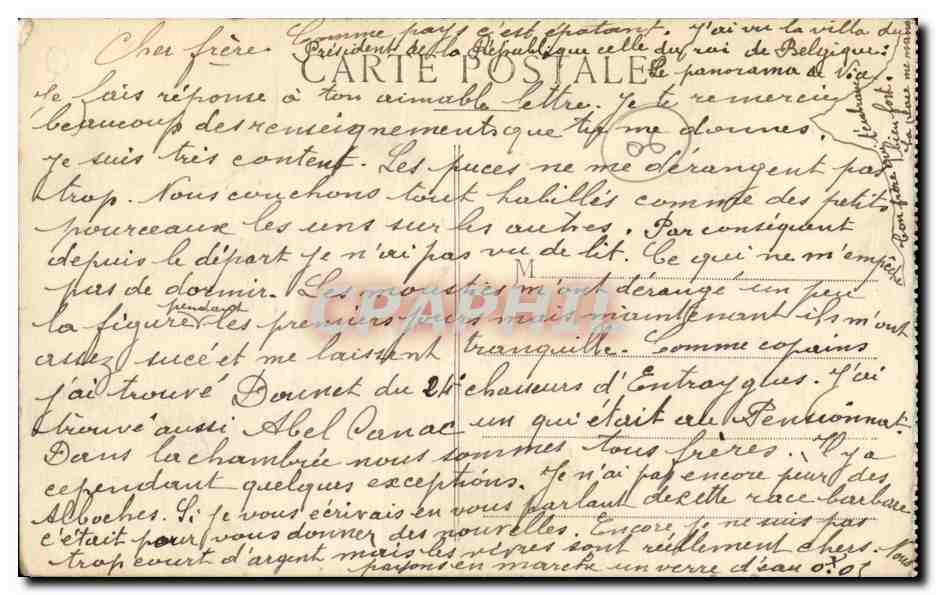 Cher frère
Je fais réponse à ton aimable lettre. Je te remercie
beaucoup des renseignements que tu me donnes.
je suis très content. Les puces ne me dérangent pas
trop. Nous couchons tout habillés comme des petits
pourceaux les uns sur les autres. Par conséquent
depuis le départ je n'ai pas vu de lit. Ce qui ne m'empêche
pas de dormir. Les moustics m'ont dérangé un peu
la figure pendant les premiers jours mais maintenant ils m'ont
assez sucé et me laissent tranquille. Comme copains
j'ai trouvé Dounet du 24e chasseurs d'Entraygues. J'ai
trouvé aussi Abel Canac un qui était au Pensionnat.
Dans la chambrée nous sommes tous frères. Il y a
cependant quelques exceptions. Je n'ai pas encore peur des
Alboches. Si je vous écrivais en vous parlant de cette race barbare
c'était pour vous donner des nouvelles. Encore je ne suis pas
trop court d'argent mais les vivres sont réellement chers. Nous
payons en marche un verre d'eau 0.05
Comme pays c'est épatant. J'ai vu la villa du
Président de la République celle du roi de Belgique.
Le panorama de
la place me manque
bien fort
Ton frère qui t'embrasse
CARTE POSTALE
M
CPAPHIL
86